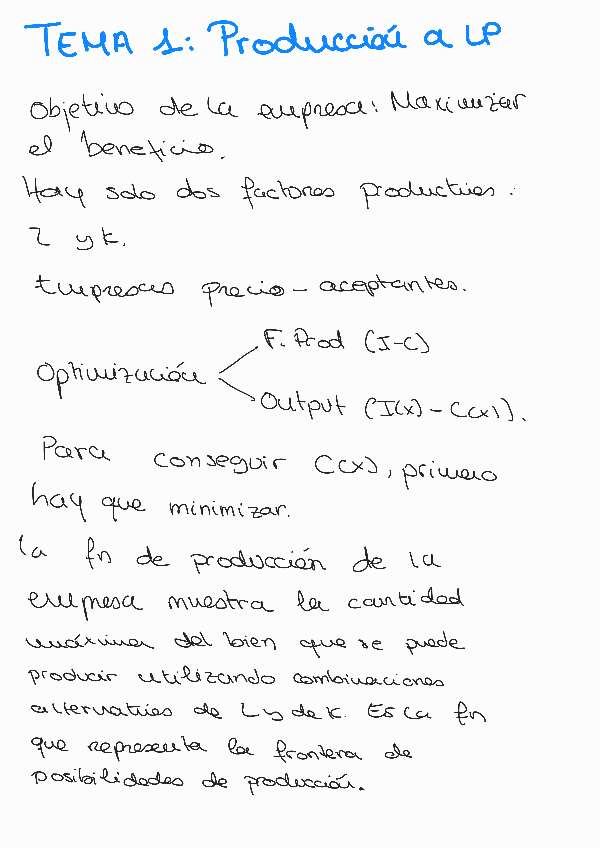 TEMA 1: Producción a LP
Objetivo de la empresa: Maximizar
el beneficio.
Hay solo dos factores productivos:
L y k.
Empresas precio-aceptantes.
F. Prod (I-C)
Optimización
Output (I(x) - C(x)).
Para conseguir C(x), primero
hay que minimizar.
la fn de producción de la
empresa muestra la cantidad
máxima del bien que se puede
producir utilizando combinaciones
alternativas de L y de k. Es la fn
que representa la frontera de
posibilidades de producción.